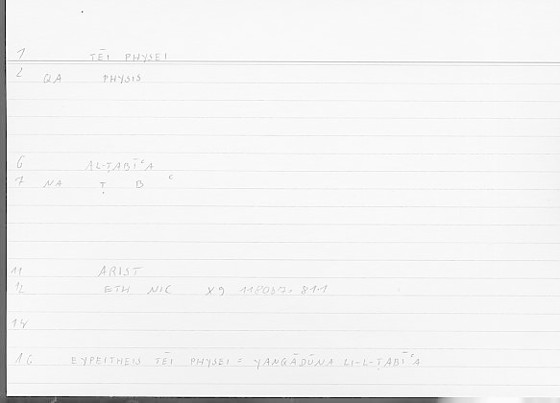 1 TĒI PHYSEI
2 QA PHYSIS
6 AL-ṬABĪʿA
7 NA Ṭ B ʿ
11 ARIST
12 ETH NIC X9
14
16 EYPEITHEIS TĒI PHYSEI = YANQĀDŪNA LI-L-ṬABĪʿA